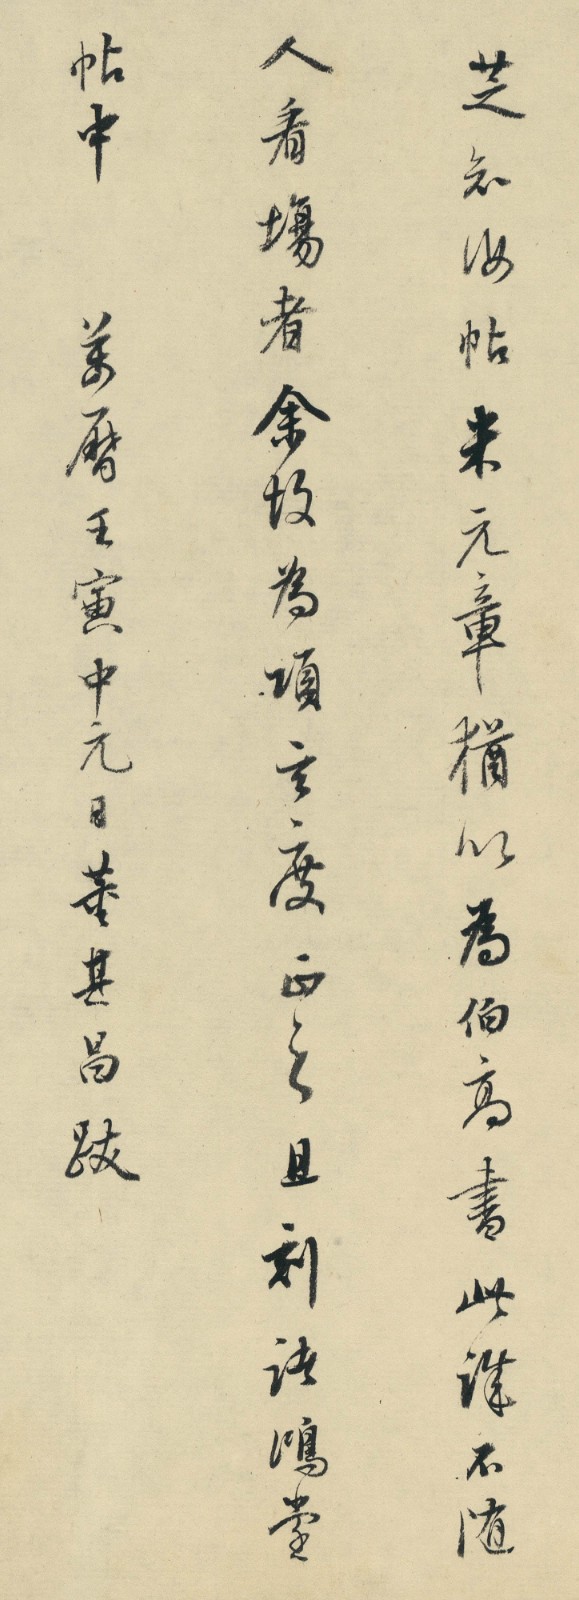 芝知汝帖米元章猶以為伯高書此誠不隨
人看塲者余故為項玄度正之且刻諸鴻堂
帖中　萬曆壬寅中元日董其昌跋